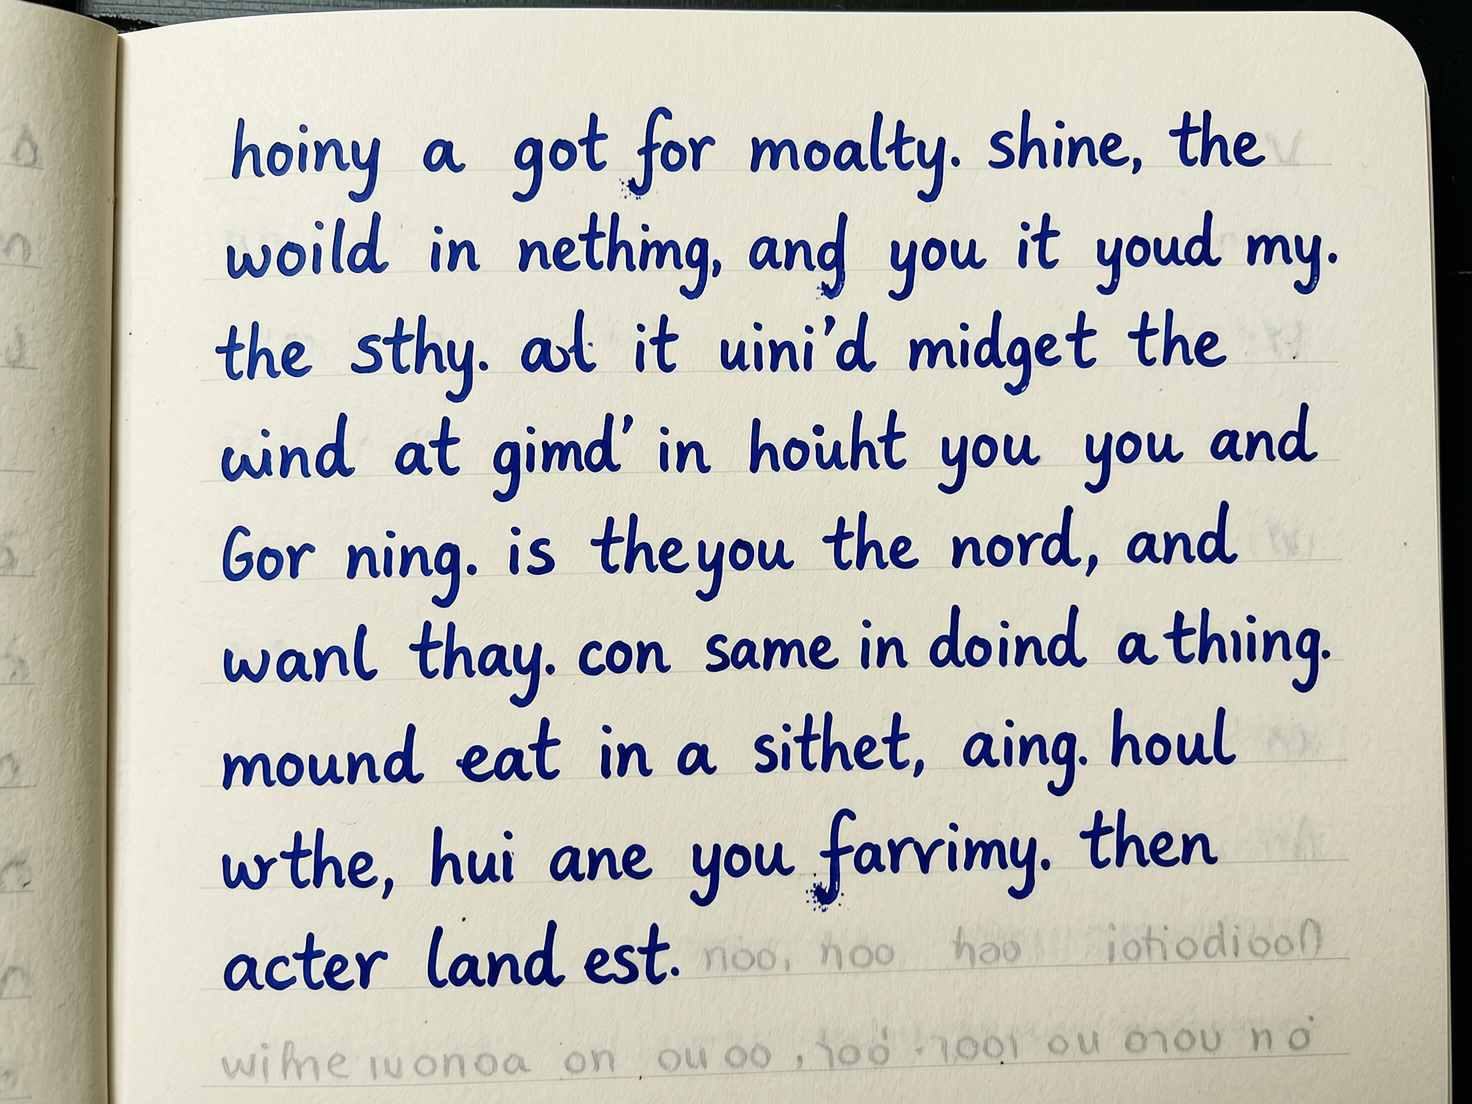 hoiny a got for moalty. shine, the
woild in nething, and you it youd my.
the sthy. at it uini'd midget the
wind at gimd' in houht you you and
Gor ning. is theyou the nord, and
wanl thay. con same in doind a thiing.
mound eat in a sithet, aing. houl
wrthe, hui ane you farrimy. then
acter land est.